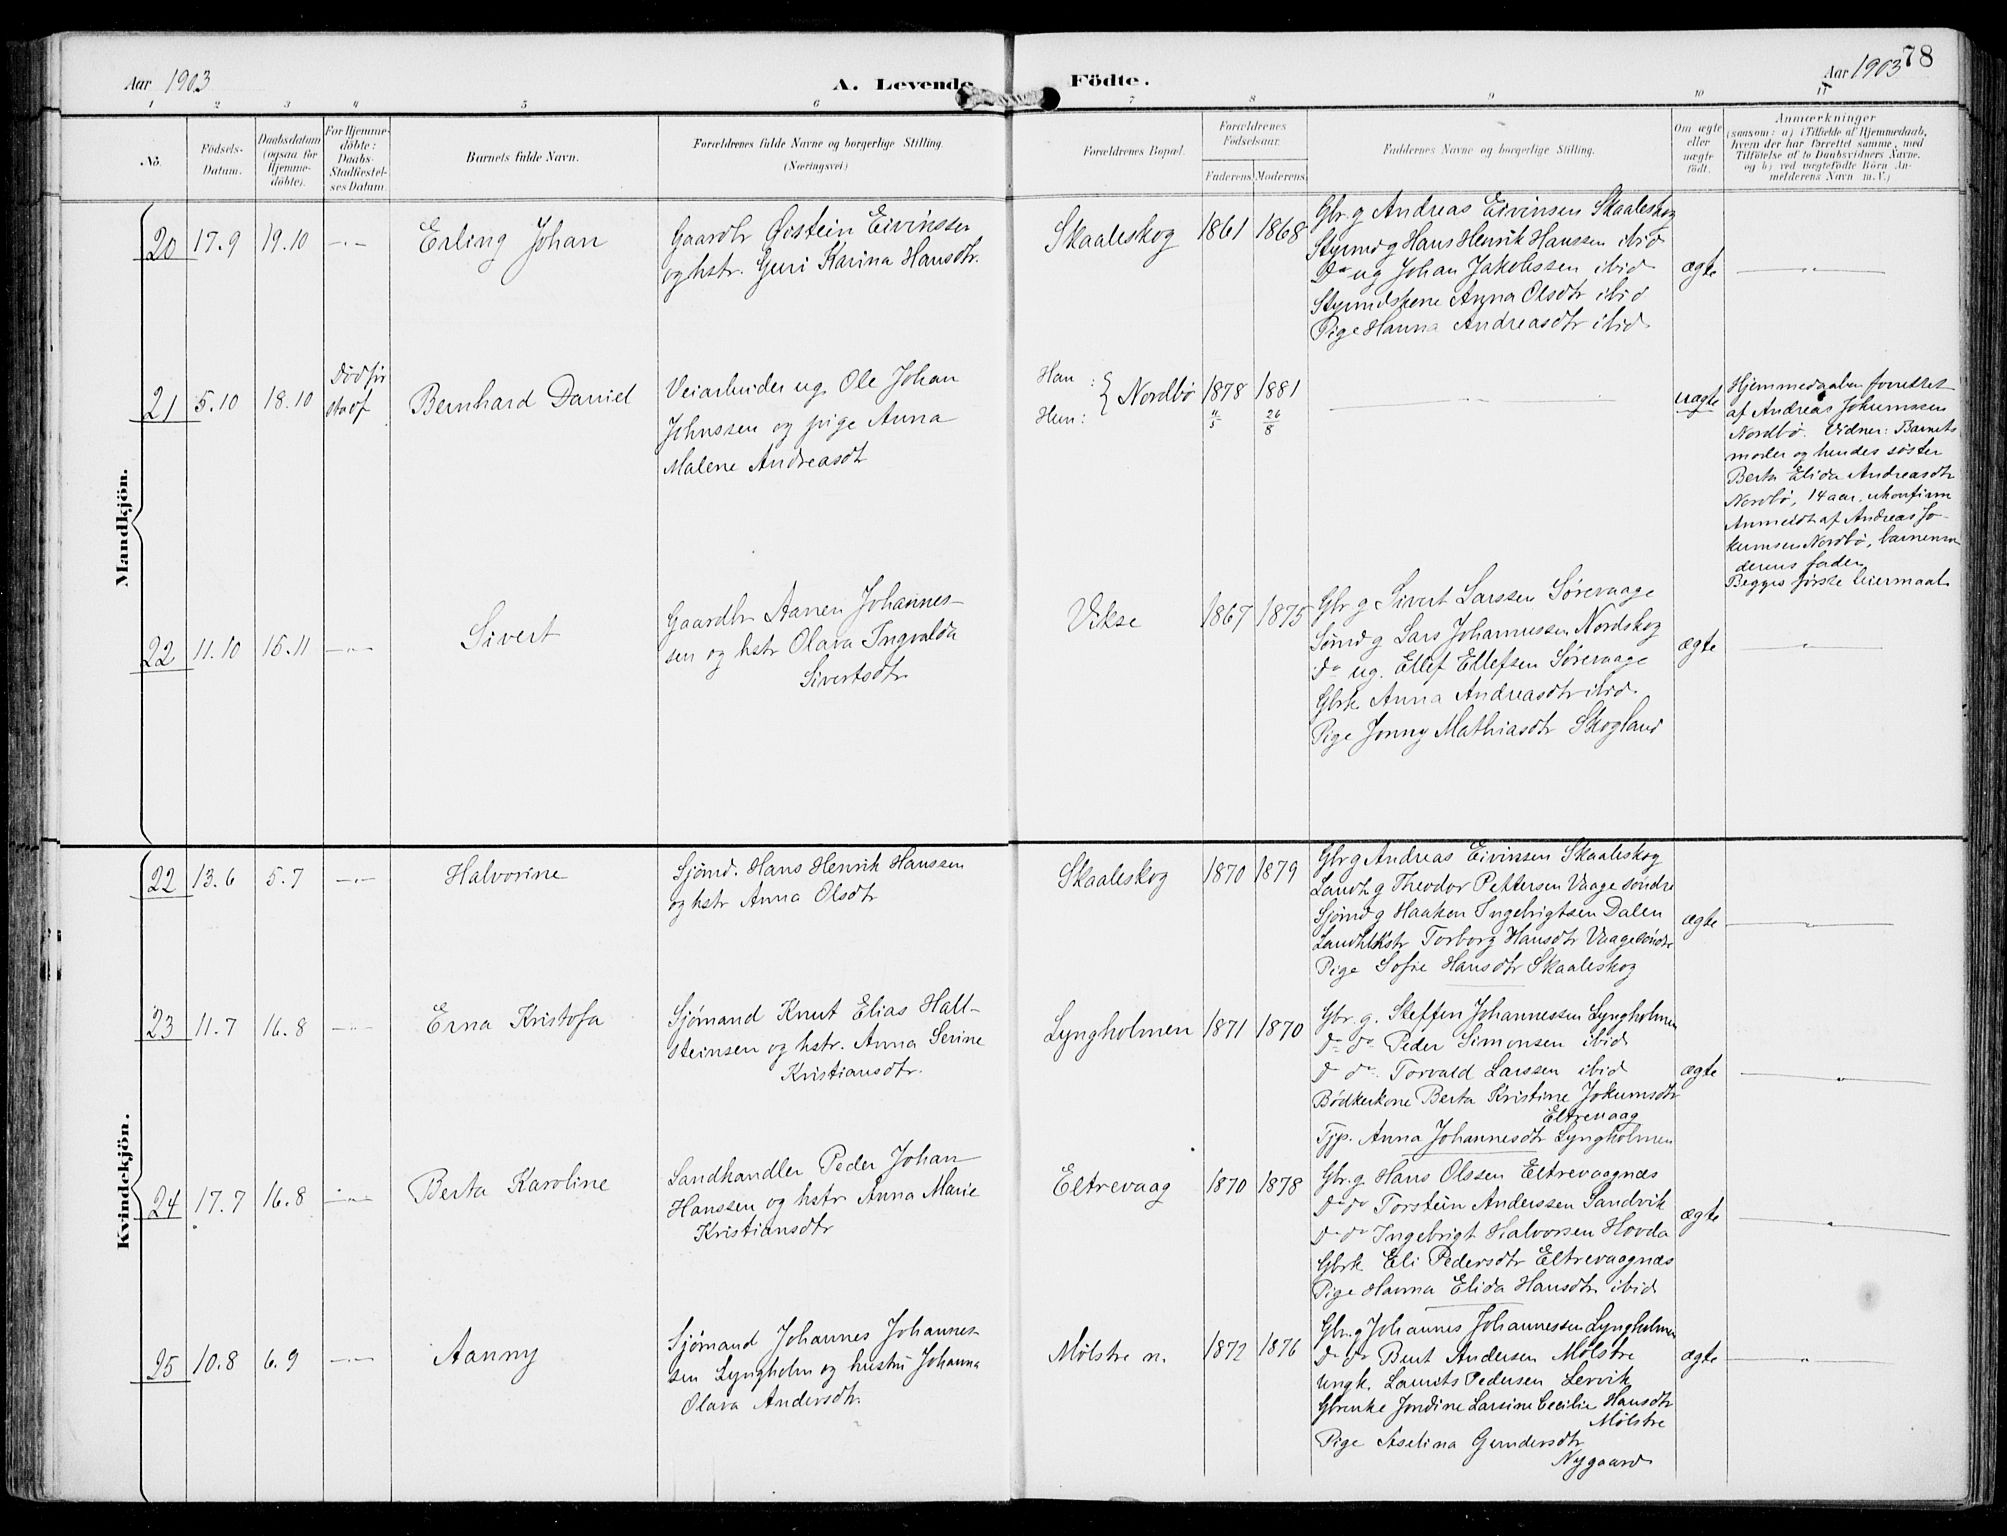 Aar 1903
A. Levende Födte.
Aar 1903
78
1 2 3 4 5 6 7 8 9 10 11
No.
Födsels-
Datum.
Daabsdatum
(ogsaa for
Hjemme-
döbte).
For Hjemme-
döbte:
Daabs-
Stadfæstel-
ses Datum.
Barnets fulde Navn.
Forældrenes fulde Navne og borgerlige Stilling.
(Næringsvei)
Forældrenes Bopæl.
Forældrenes
Födselsaar.
Faderens. Moderens.
Faddernes Navne og borgerlige Stilling.
Om ægte
eller
uægte
födt.
Anmærkninger
(saasom: a) i Tilfælde af Hjemmedaab,
hvem der har forrettet samme, med
Tilföielse af to Daabsvidners Navne.
og b) ved uægtefödte Börn An-
melderens Navn m. V.)
Mandkjön.
20 17.9 19.10 -„- Erling Johan
Gaardbr Øistein Eivinssen
og hstr. Guri Karina Hansdtr.
Skaaleskog 1861 1868
Gbr. g Andreas Eivinsen Skaaleskog
Styrmd g Hans Henrik Hanssen ibid
do ug Johan Jakobssen ibid
Styrmdskone Anna Olsdtr ibid
Pige Hanna Andreasdtr ibid
ægte
21 5.10 18.10
Død før
stadf
Bernhard Daniel
Veiarbeider ug. Ole Johan
Johnssen og pige Anna
Malene Andreasdt
Han:
Hun:
Nordbø 1878 1881
11/5 26/8
uægte
Hjemmedaaben forrettet
af Andreas Jokumssen
Nordbø. Vidner: Barnets
moder og hendes søster
Berta Elida Andreasdtr
Nordbø, 14 aar, ukonfirm
Anmeldt af Andreas Jo-
kumsen Nordbø, barnemo
derens fader.
Begges første leiermaal.
22 11.10 15.11 -„- Sivert
Gaardbr Aanen Johannes-
sen og hstr Olava Ingvalda
Sivertsdtr
Vikse 1867 1875
Gbr g Sivert Larssen Sørevaage
Sømd g Lars Johannessen Nordskog
do ug. Ellef Ellefsen Sørevaage
Gbrk Anna Andreasdtr ibid.
Pige Jonny Mathiasdtr Skogland
ægte
Kvindekjön.
22 13.6 5.7 -„- Halvorine
Sjømd. Hans Henrik Hanssen
og hstr Anna Olsdtr
Skaaleskog 1870 1879
Gbr g Andreas Eivinsen Skaaleskog
Landh. g Theodor Pettersen Vaage søndre
Sjømd g Haaken Ingebrigtsen Dalen
Landhhstr Torborg Hansdtr Vaage søndre
Pige Sofie Hansdtr Skaaleskog
ægte
23 11.7 16.8 -„- Erna Kristofa
Sjømand Knut Elias Hall-
steinsen og hstr. Anna Serine
Kristiansdtr.
Lyngholmen 1871 1870
Gbr. g. Steffen Johannessen Lyngholmen
do do Peder Simonsen ibid
do do Torvald Larssen ibid
Bødkerkone Berta Kristine Jokumsdtr
Eltrevaag
Tjp. Anna Johannesdtr Lyngholmen
ægte
24 17.7 16.8 -„- Berta Karoline
Landhandler Peder Johan
Hanssen og hstr Anna Marie
Kristiansdtr
Eltrevaag 1870 1878
Gbr. g. Hans Olssen Eltrevaagnæs
do do Torstein Anderssen Sandvik
do do Ingebrigt Halvorsen Hovda
Gbrk Eli Pedersdtr Eltrevaagnæs
Pige Hanna Elida Hansdtr ibid
ægte
25 10.8 6.9 -„- Aanny
Sjømand Johannes Johannes-
sen Lyngholm og hustru Johanna
Olava Andersdtr.
Mølstre n. 1872 1876
Gbr. g Johannes Johannessen Lyngholmen
do do Bent Andersen Mølstre
Ungk. Laurits Pedersen Lervik
Gbrenke Jondine Larsine Cecilie Hansdtr
Mølstre
Pige Aselina Gundersdtr
Nygaard
ægte